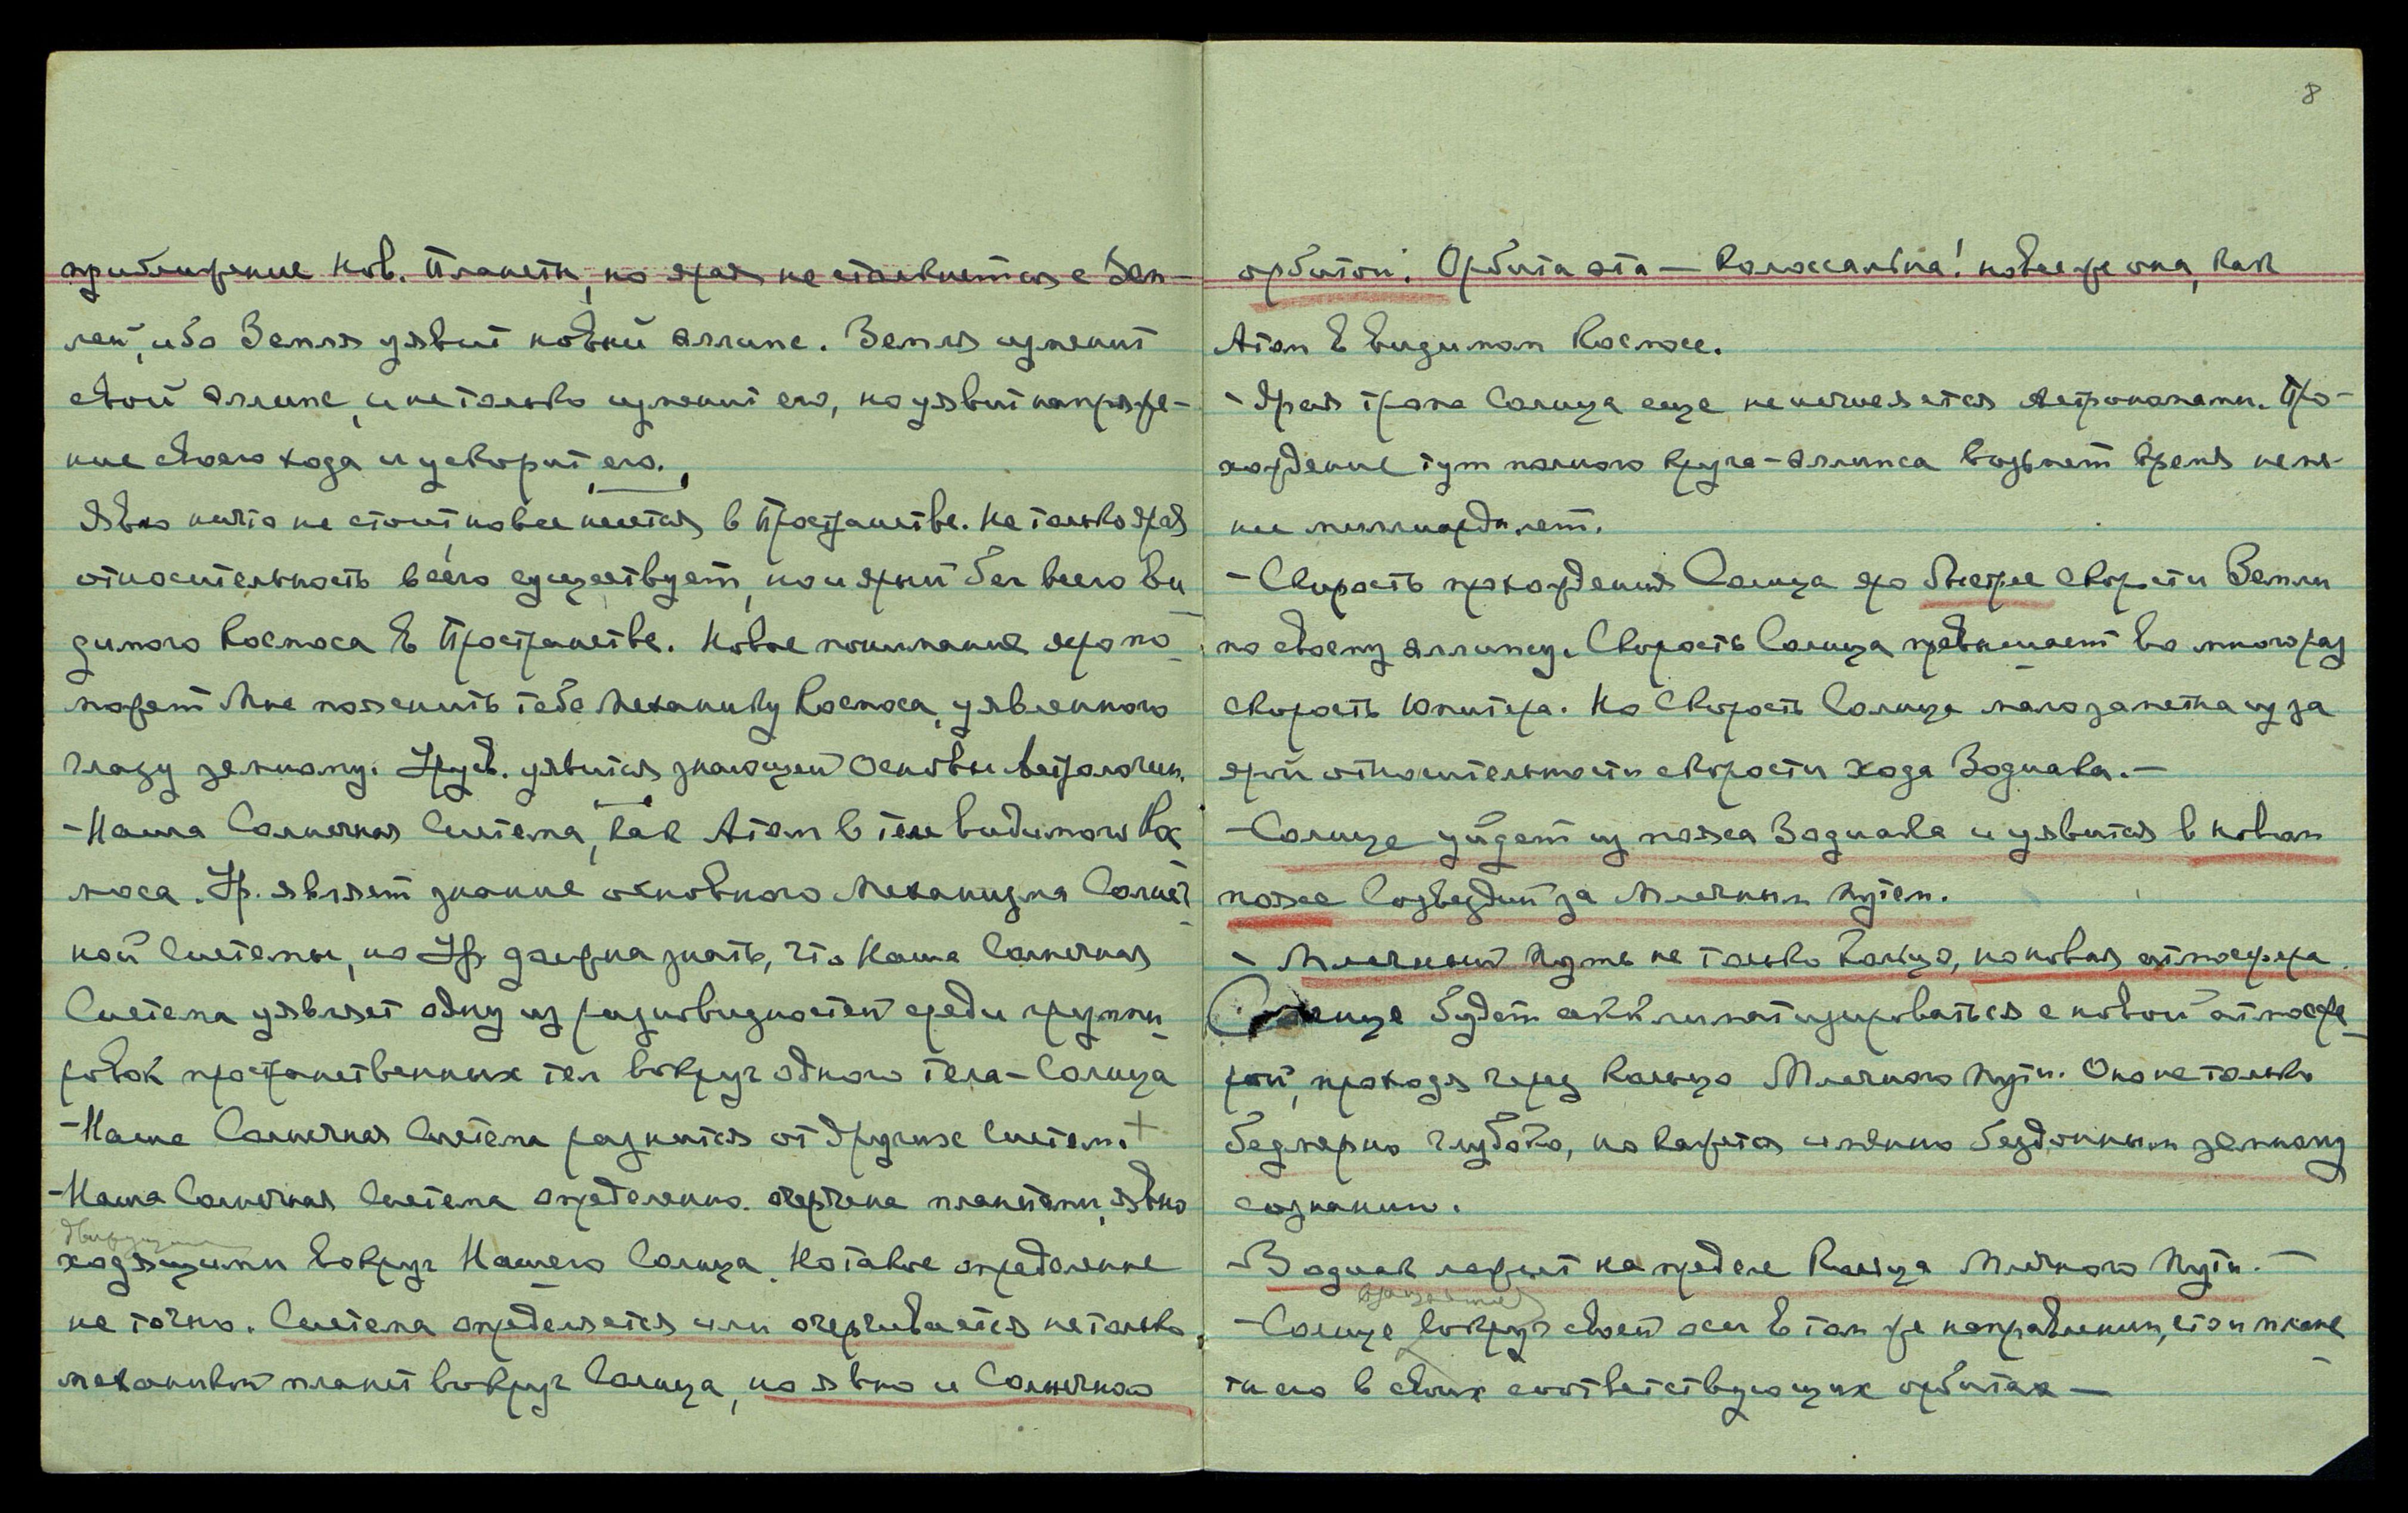 приближение нов. Планеты, но ярая не столкнется с Зем-
лей, ибо Земля уявит новый эллипс. Земля изменит
свой эллипс, и не только изменит его, но уявит напряже-
ние своего хода и ускорит его.
Явно ничто не стоит, но все несется в Пространстве. Не только ярая
относительность всего существует, но и ярый бег всего ви
димого Космоса в Пространстве. Новое понимание яро по-
может Мне пояснить тебе Механику Космоса, уявленного
глазу земному. Урусв. уявится знающей Основы Астрологии.
-Наша Солнечная Система, как Атом в теле видимого Кос
моса. Ур. являет знание основного Механизма Солнеч
ной Системы, но Ур. должна знать, что Наша Солнечная
Система уявляет одну из разновидностей среди группи-
ровок пространственных тел вокруг одного тела-Солнца
-Наша Солнечная Система разнится от других Систем. +
-Наша Солнечная Система определенно очерчена планетами, явно
движущими
ходящими вокруг Нашего Солнца. Но такое определение
не точно. Система определяется или очерчивается не только
механикой планет вокруг Солнца, но явно и Солнечною
8
орбитой. Орбита эта — колоссальна! но все же она, как
Атом в видимом Космосе.
- Ярая тропа Солнца еще не исчисляется Астрономами. Про-
хождение тут полного круга-эллипса возьмет время не ме-
нее миллиарда лет.
-Скорость прохождения Солнца яро быстрее скорости Земли
по своему эллипсу. Скорость Солнца превышает во много раз
скорость Юпитера. Но Скорость Солнца мало заметна из за
ярой относительности скорости хода Зодиака.—
-Солнце уйдет из пояса Зодиака и уявится в новом
поясе Созвездий за Млечным Путем.
- Млечный Путь не только Кольцо, но новая атмосфера.
Солнце будет акклиматизироваться с новой атмосфе-
рой, проходя через Кольцо Млечного Пути. Оно не только
безмерно глубоко, но кажется именно бездонным земному
сознанию.
-Зодиак лежит на пределе Кольца Млечного Пути. —
вращается
-Солнце вокруг своей оси в том же направлении, что и плане
ты его в своих соответствующих орбитах —